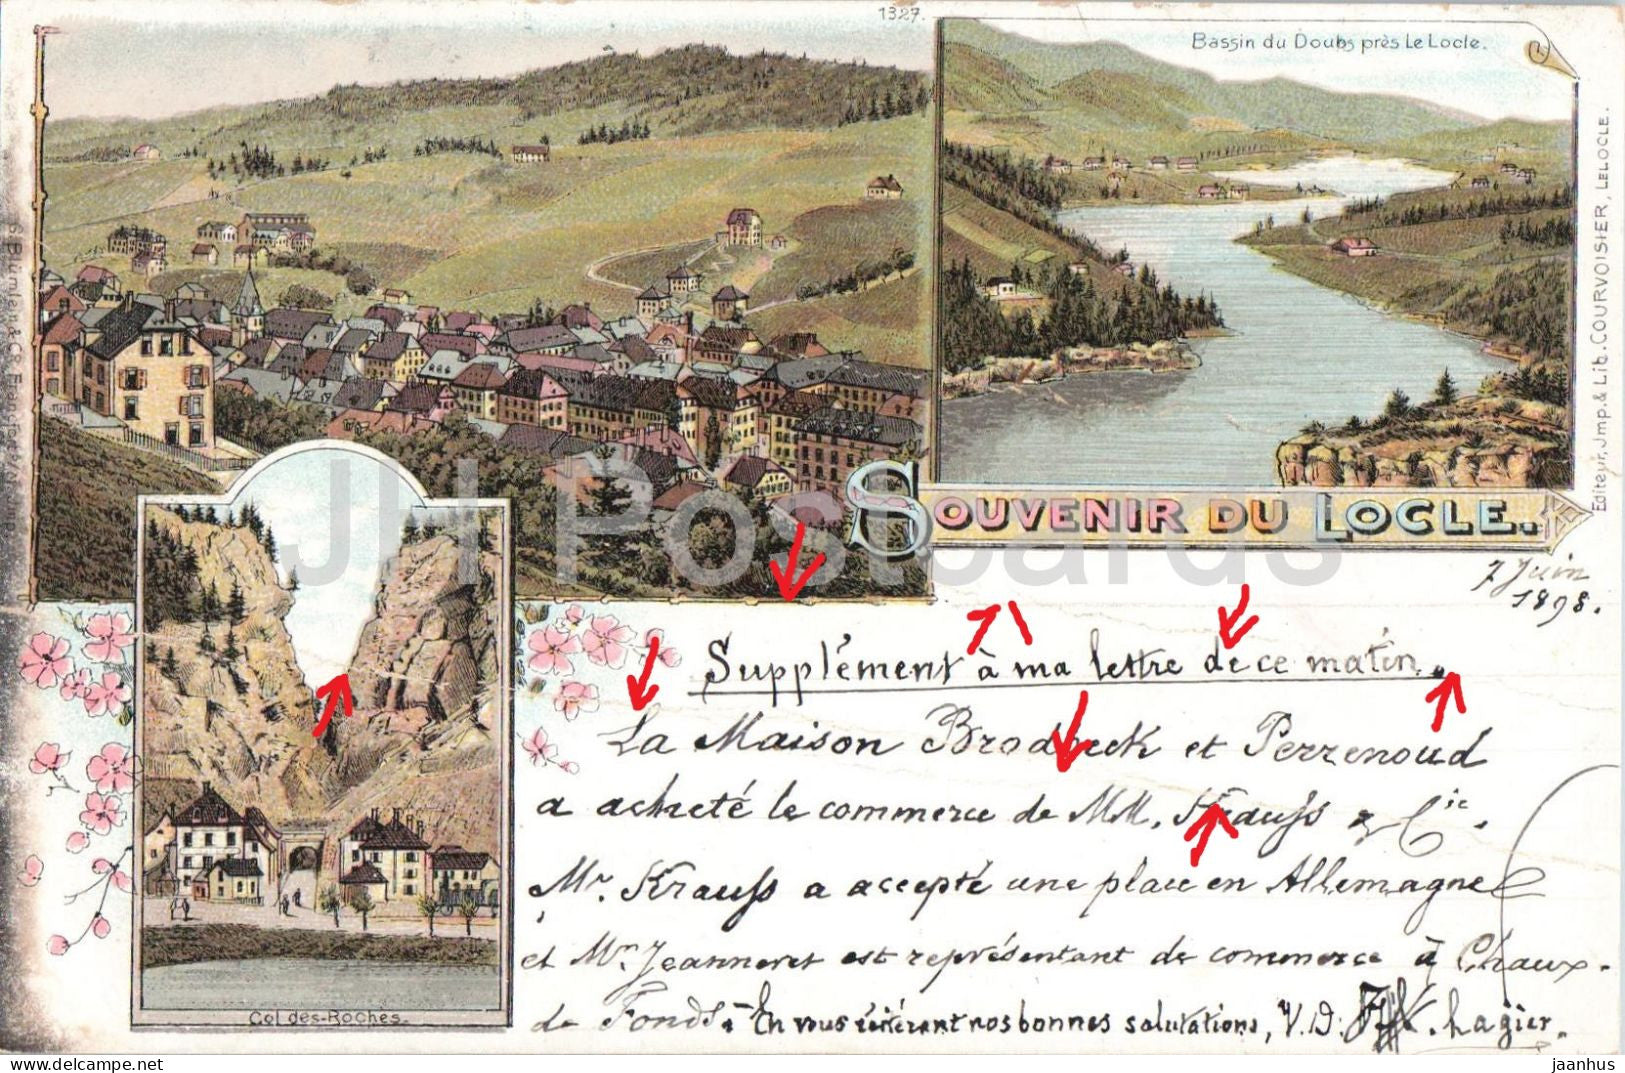 1327.
Bassin du Doubs près Le Locle.
Editeur, Jmp. & Lib. COURVOISIER, LELOCLE.
SOUVENIR DU LOCLE.
JH Postcards
Col des-Roches.
7 Juin
1898.
Supplément à ma lettre de ce matin.
La Maison Brodbeck et Perrenoud
a acheté le commerce de MM. Krauss & Cie.
Mr. Krauss a accepté une place en Allemagne
et Mr. Jeanneret est représentant de commerce à Chaux-
de Fonds. En vous réitérant nos bonnes salutations, V. D.
jaanhus